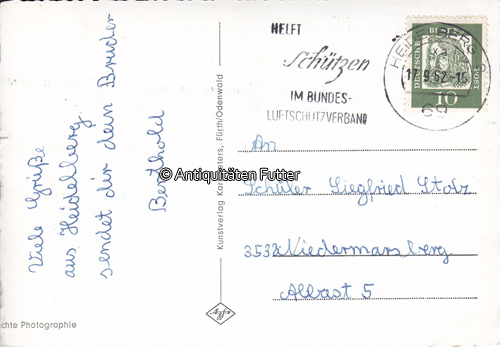 HELFT
Schützen
IM BUNDES-
LUFTSCHUTZVERBAND
HEIDELBERG
17.9.62-15
69
DEUTSCHE BUNDESPOST
10
Viele Grüße
aus Heidelberg
sendet dir dein Bruder
Berthold
© Antiquitäten Futter
Kunstverlag Karl Peters, Fürth/Odenwald
An
Schüler Siegfried Stolz
3532 Niedermarsberg
Allast 5
Agfa
chte Photographie